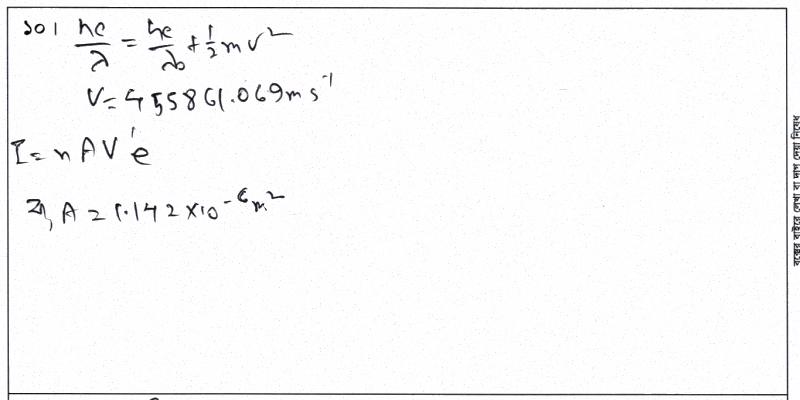 ১০। hc/λ = hc/λ₀ + 1/2 mv²
V = 455861.069 ms⁻¹
I = nAV'e
বা, A = 1.142 × 10⁻⁶ m²
বক্সের বাইরে লেখা বা দাগ দেয়া নিষেধ